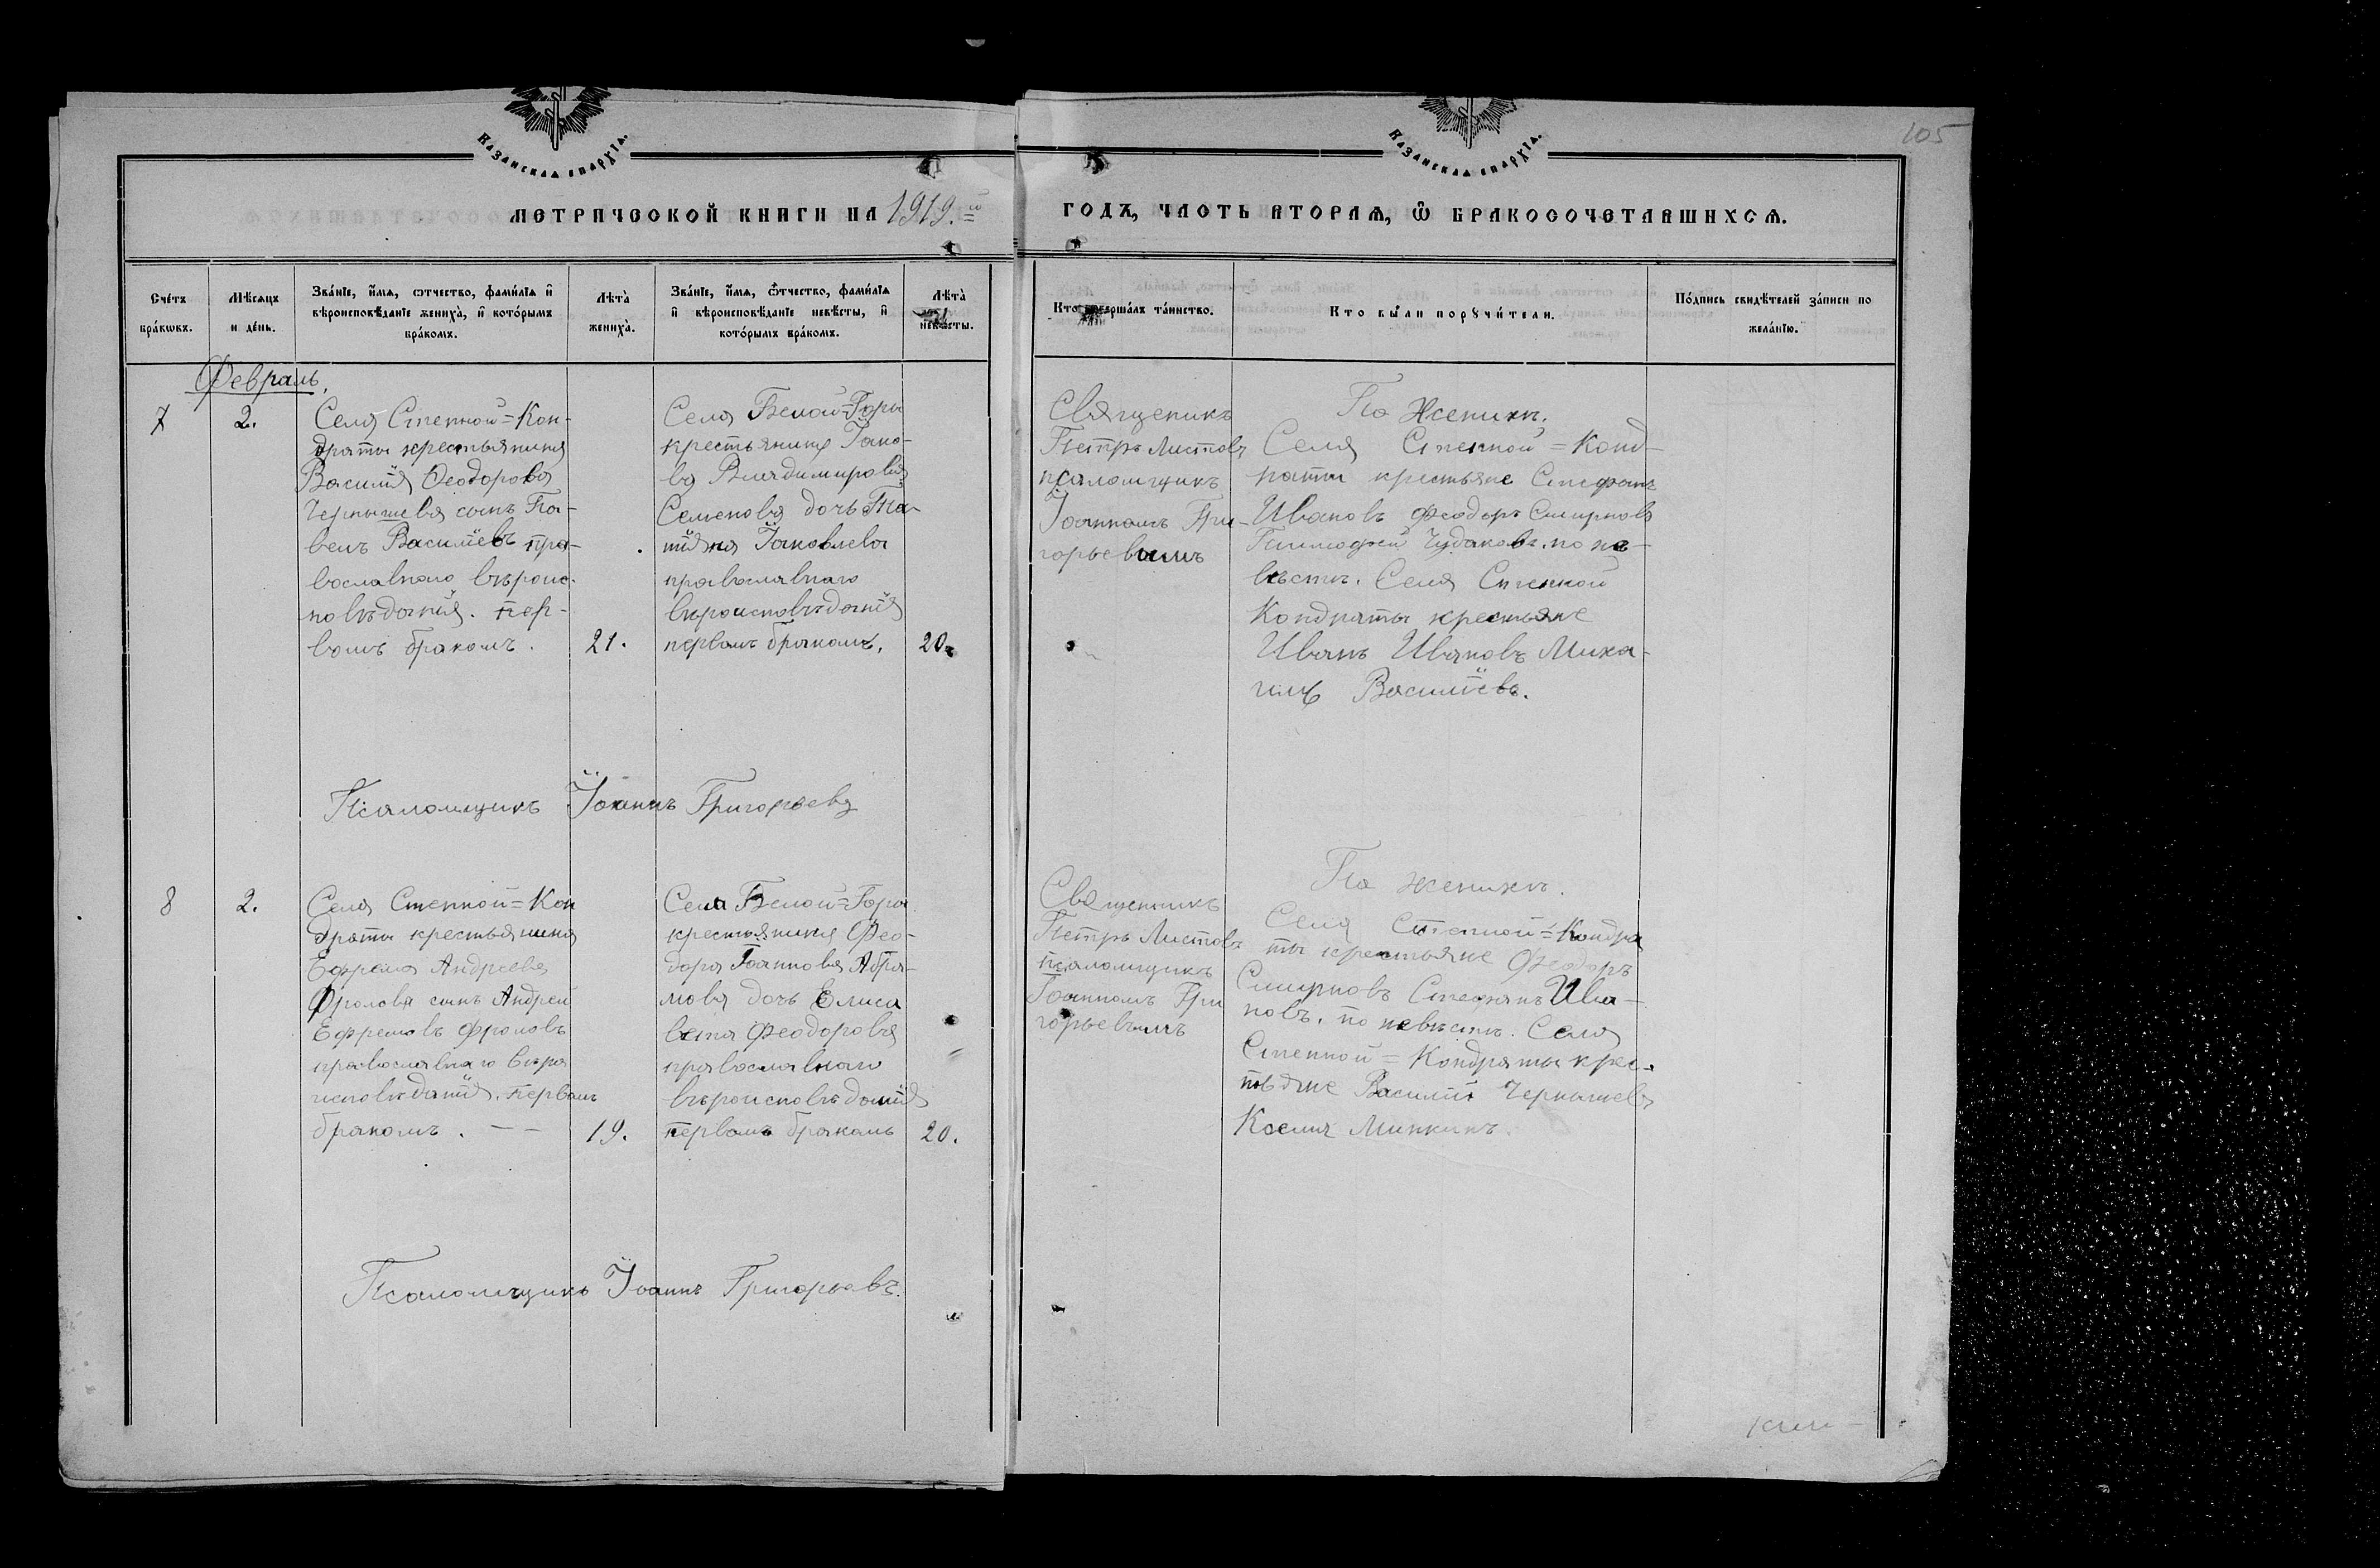 КАЗАНСКАЯ ЕПАРХІЯ.
КАЗАНСКАЯ ЕПАРХІЯ.
105
МЕТРИЧЕСКОЙ КНИГИ НА 1919.го
ГОДЪ, ЧАСТЬ ВТОРАѦ, Ѿ БРАКОСОЧЕТАВШИХСѦ.
Сче́тъ бра́кѡвъ.
Мѣ́сѧцъ и де́нь.
Зва́нїе, и҆́мѧ, ѻтчество, фами́лїѧ и҆ вѣроисповѣ́данїе жениха̀, и҆ кото́рымъ бра́комъ.
Лѣта̀ жениха̀.
Зва́нїе, и҆́мѧ, ѻтчество, фами́лїѧ и҆ вѣроисповѣ́данїе невѣ́сты, и҆ кото́рымъ бра́комъ.
Лѣта̀ невѣ́сты.
Кто соверша́лъ та́инство.
Кто бы́ли порꙋчи́тели.
По́дпись свидѣ́телей за́писи по жела́нїю.
Февраль.
7
2.
Села Степной=Кон-
драты крестьянина
Василія Ѳеодорова
Чернышева сынъ Па-
велъ Василіевъ пра-
вославнаго вѣроис-
повѣданія. пер-
вымъ бракомъ.
21.
Села Белой=Горы
крестьянина Іако-
ва Владимирова
Семенова дочь Та-
тіяна Іаковлева
православнаго
вѣроисповѣданія
первымъ бракомъ.
20.
Священикъ
Петръ Листовъ
псаломщикъ
Іоанномъ Гри-
горьевымъ
По Женихѣ.
Села Степной=Конд-
раты крестьяне Стефанъ
Ивановъ Феодоръ Смирновъ
Тимофей Чудаковъ. по не-
вѣстѣ. Села Степной
Кондраты крестьяне
Иванъ Ивановъ Миха-
илъ Василіевъ.
Псаломщикъ Іоаннъ Григорьевъ
8
2.
Села Степной=Кон
драты крестьянина
Ефрема Андреева
Фролова сынъ Андрей
Ефремовъ Фроловъ
православнаго вѣро
исповѣданія. первымъ
бракомъ. — —
19.
Села Белой=Горы
крестьянина Фео-
дора Іоаннова Абра-
мова дочь Елиса
вета Феодорова
православнаго
вѣроисповѣданія
первымъ бракомъ
20.
Священникъ
Петръ Листовъ
псаломщикъ
Іоанномъ Гри
горьевымъ
По женихѣ.
Села Степной=Кондра
ты крестьяне Феодоръ
Смирновъ Стефанъ Ива-
новъ. по невѣстѣ. Села
Степной=Кондраты крес-
тьяне Василій Чернышевъ
Косма Минкинъ.
Псаломщикъ Іоаннъ Григорьевъ.